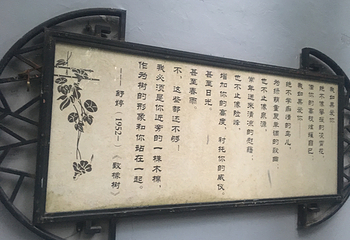 我如果爱你
绝不像攀援的凌霄花
借你的高枝炫耀自己
我如果爱你
绝不学痴情的鸟儿
为绿荫重复单调的歌曲
也不止像泉源
常年送来清凉的慰藉
也不止像险峰
增加你的高度，衬托你的威仪。
甚至日光。
甚至春雨。
不，这些都还不够！
我必须是你近旁的一株木棉，
作为树的形象和你站在一起。
——舒婷（1952-）《致橡树》